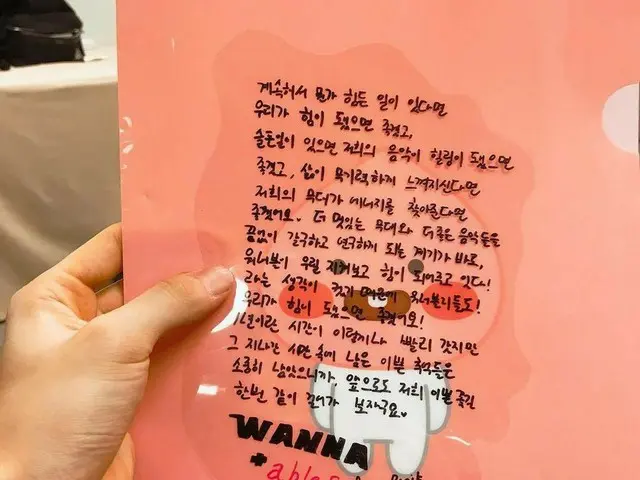 계속해서 뭔가 힘든 일이 있다면
우리가 힘이 됐으면 좋겠고,
슬픈일이 있으면 저희의 음악이 힐링이 됐으면
좋겠고, 삶이 무기력하게 느껴지신다면
저희의 무대가 에너지를 찾아준다면
좋겠어요. 더 멋있는 무대와 더 좋은 음악들을
끝없이 갈구하고 연구하게 되는 계기가 바로,
워너블이 우릴 지켜보고 힘이 되어주고 있다!
라는 생각이 컸기 때문에 워너블리들도!
우리가 힘이 됐으면 좋겠어요!
1년이란 시간이 이렇게나 빨리 갔지만
그 지나간 시간 속에 남은 이쁜 추억들은
소중히 남았으니까, 앞으로도 저희 이쁜 꽃길
한번 같이 걸어가 보자구요.
WANNA
+
able